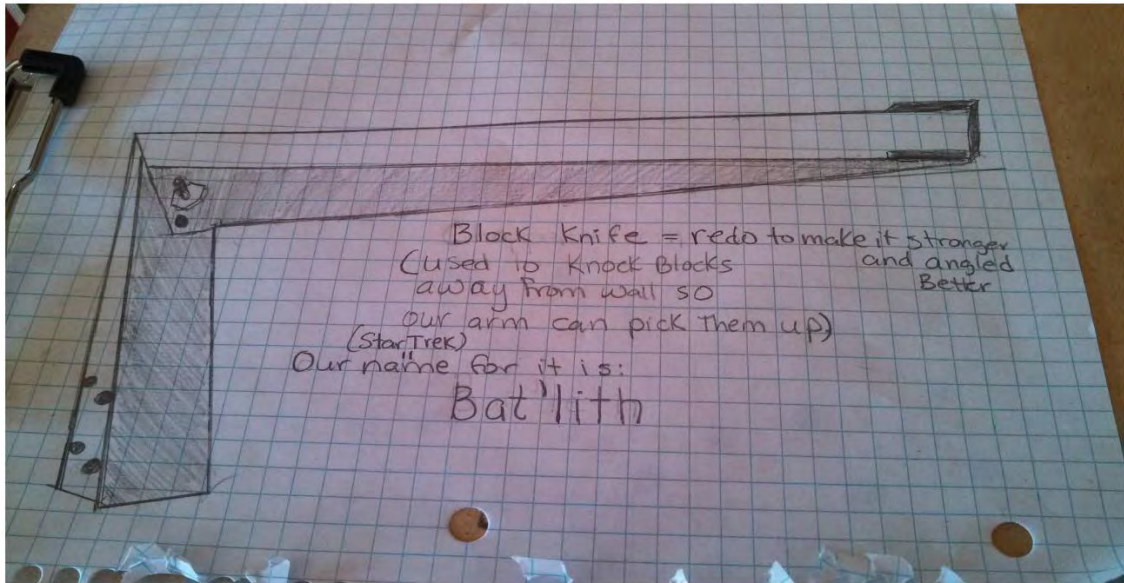 Block Knife = redo to make it stronger
and angled
Better
(used to Knock Blocks
away from wall so
our arm can pick them up)
(StarTrek)
Our name for it is:
Bat'lith